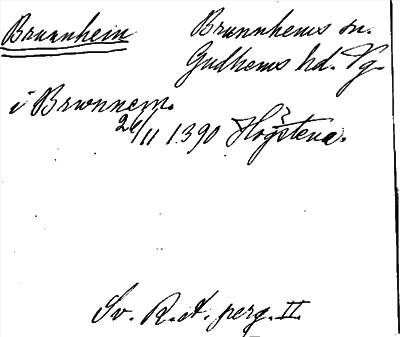 Brunnhem
Brunnhems sn.
Gudhems hd. Vg.
i Brwnnem.
26/11 1390 Högstena.
Sv. R.A. perg. II.